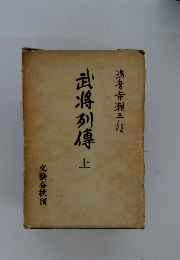 海音寺潮五郎
武将列傳
上
文藝春秋刊